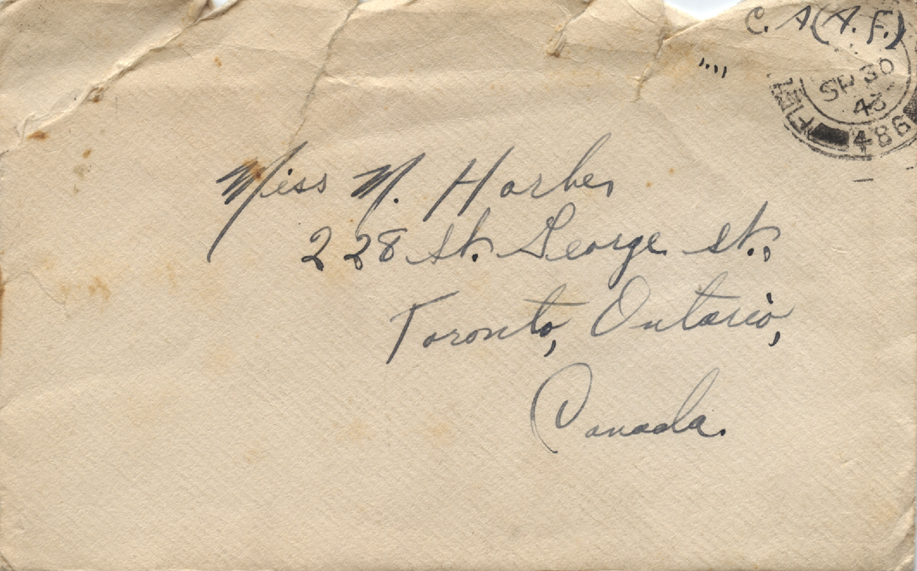 C. A (A. F.)
SP 30
43
FIEL
486
Miss M. Harber
228 St. George st.,
Toronto, Ontario,
Canada.